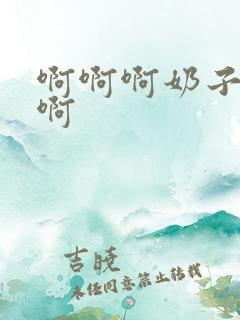 啊啊啊奶子
啊
吉晓
未经同意禁止转载